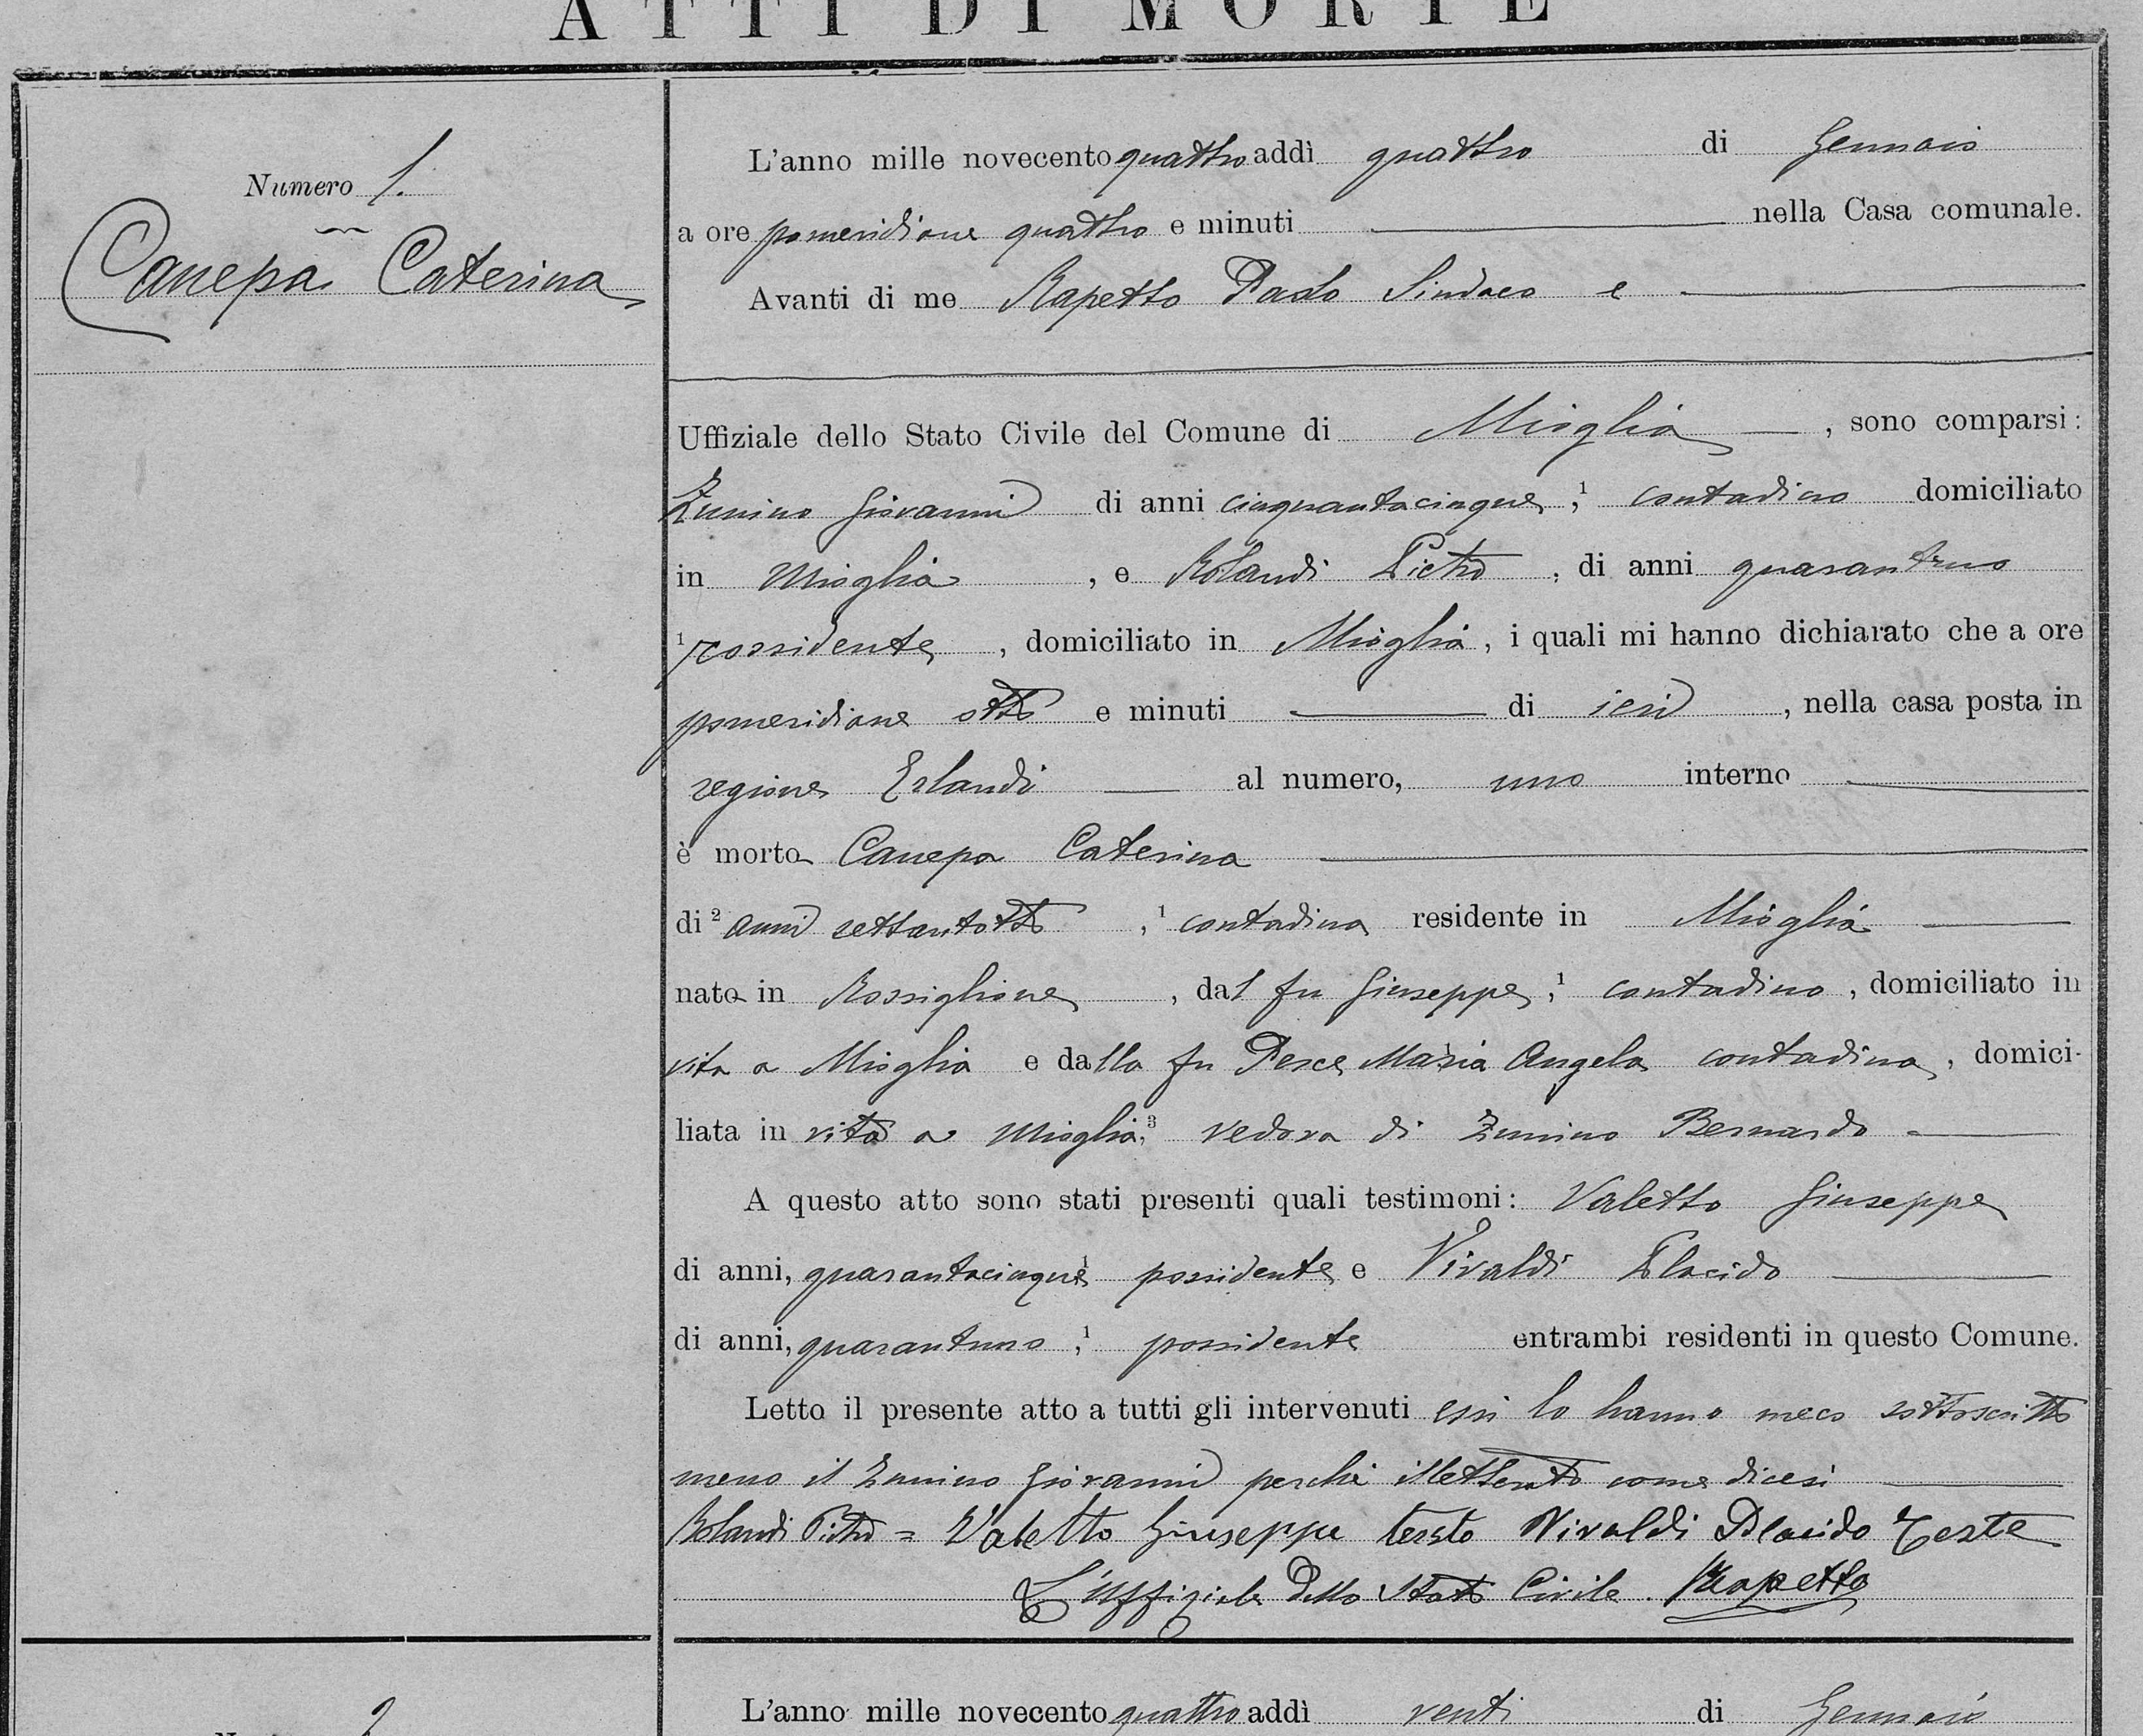 ATTI DI MORTE
Numero 1.
Canepa Caterina
L'anno mille novecento quattro addì quattro di Gennaio
a ore pomeridiane quattro e minuti — nella Casa comunale.
Avanti di me Rapetto Paolo Sindaco e —
Uffiziale dello Stato Civile del Comune di Mioglia —, sono comparsi:
Zunino Giovanni di anni cinquantacinque, ¹ contadino domiciliato
in Mioglia, e Rolandi Pietro, di anni quarantuno
¹ possidente, domiciliato in Mioglia, i quali mi hanno dichiarato che a ore
pomeridiane otto e minuti — di ieri, nella casa posta in
regione Erlandi — al numero, uno interno —
è morta Canepa Caterina —
di ² anni settantotto, ¹ contadina residente in Mioglia —
nata in Rossiglione, dal fu Giuseppe, ¹ contadino, domiciliato in
vita a Mioglia e dalla fu Pesce Maria Angela contadina, domici-
liata in vita a Mioglia, ³ vedova di Zunino Bernardo —
A questo atto sono stati presenti quali testimoni: Valetto Giuseppe
di anni, quarantacinque ¹ possidente e Vivaldi Placido —
di anni, quarantuno, ¹ possidente entrambi residenti in questo Comune.
Letto il presente atto a tutti gli intervenuti essi lo hanno meco sottoscritto
meno il Zunino Giovanni perchè illetterato come dicesi —
Rolandi Pietro = Valetto Giuseppe tersto Vivaldi Placido Teste
L'Uffiziale dello Stato Civile. Rapetto
2
L'anno mille novecento quattro addì venti di Gennaio